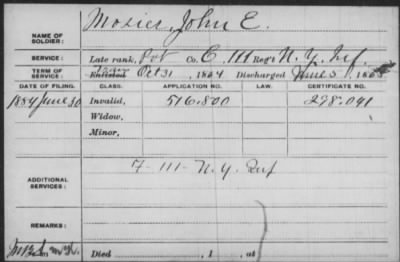 NAME OF SOLDIER: Mosier, John E.
SERVICE: Late rank, Pvt Co. C, 111 Reg't N.Y. Inf.
TERM OF SERVICE: Enlisted Oct 31, 1864 Discharged June 5, 1865
DATE OF FILING. CLASS. APPLICATION NO. LAW. CERTIFICATE NO.
1884 June 30 Invalid, 516.800 298.041
Widow,
Minor,
ADDITIONAL SERVICES: F-111-N.Y. Inf
REMARKS:
Died , 1 , at